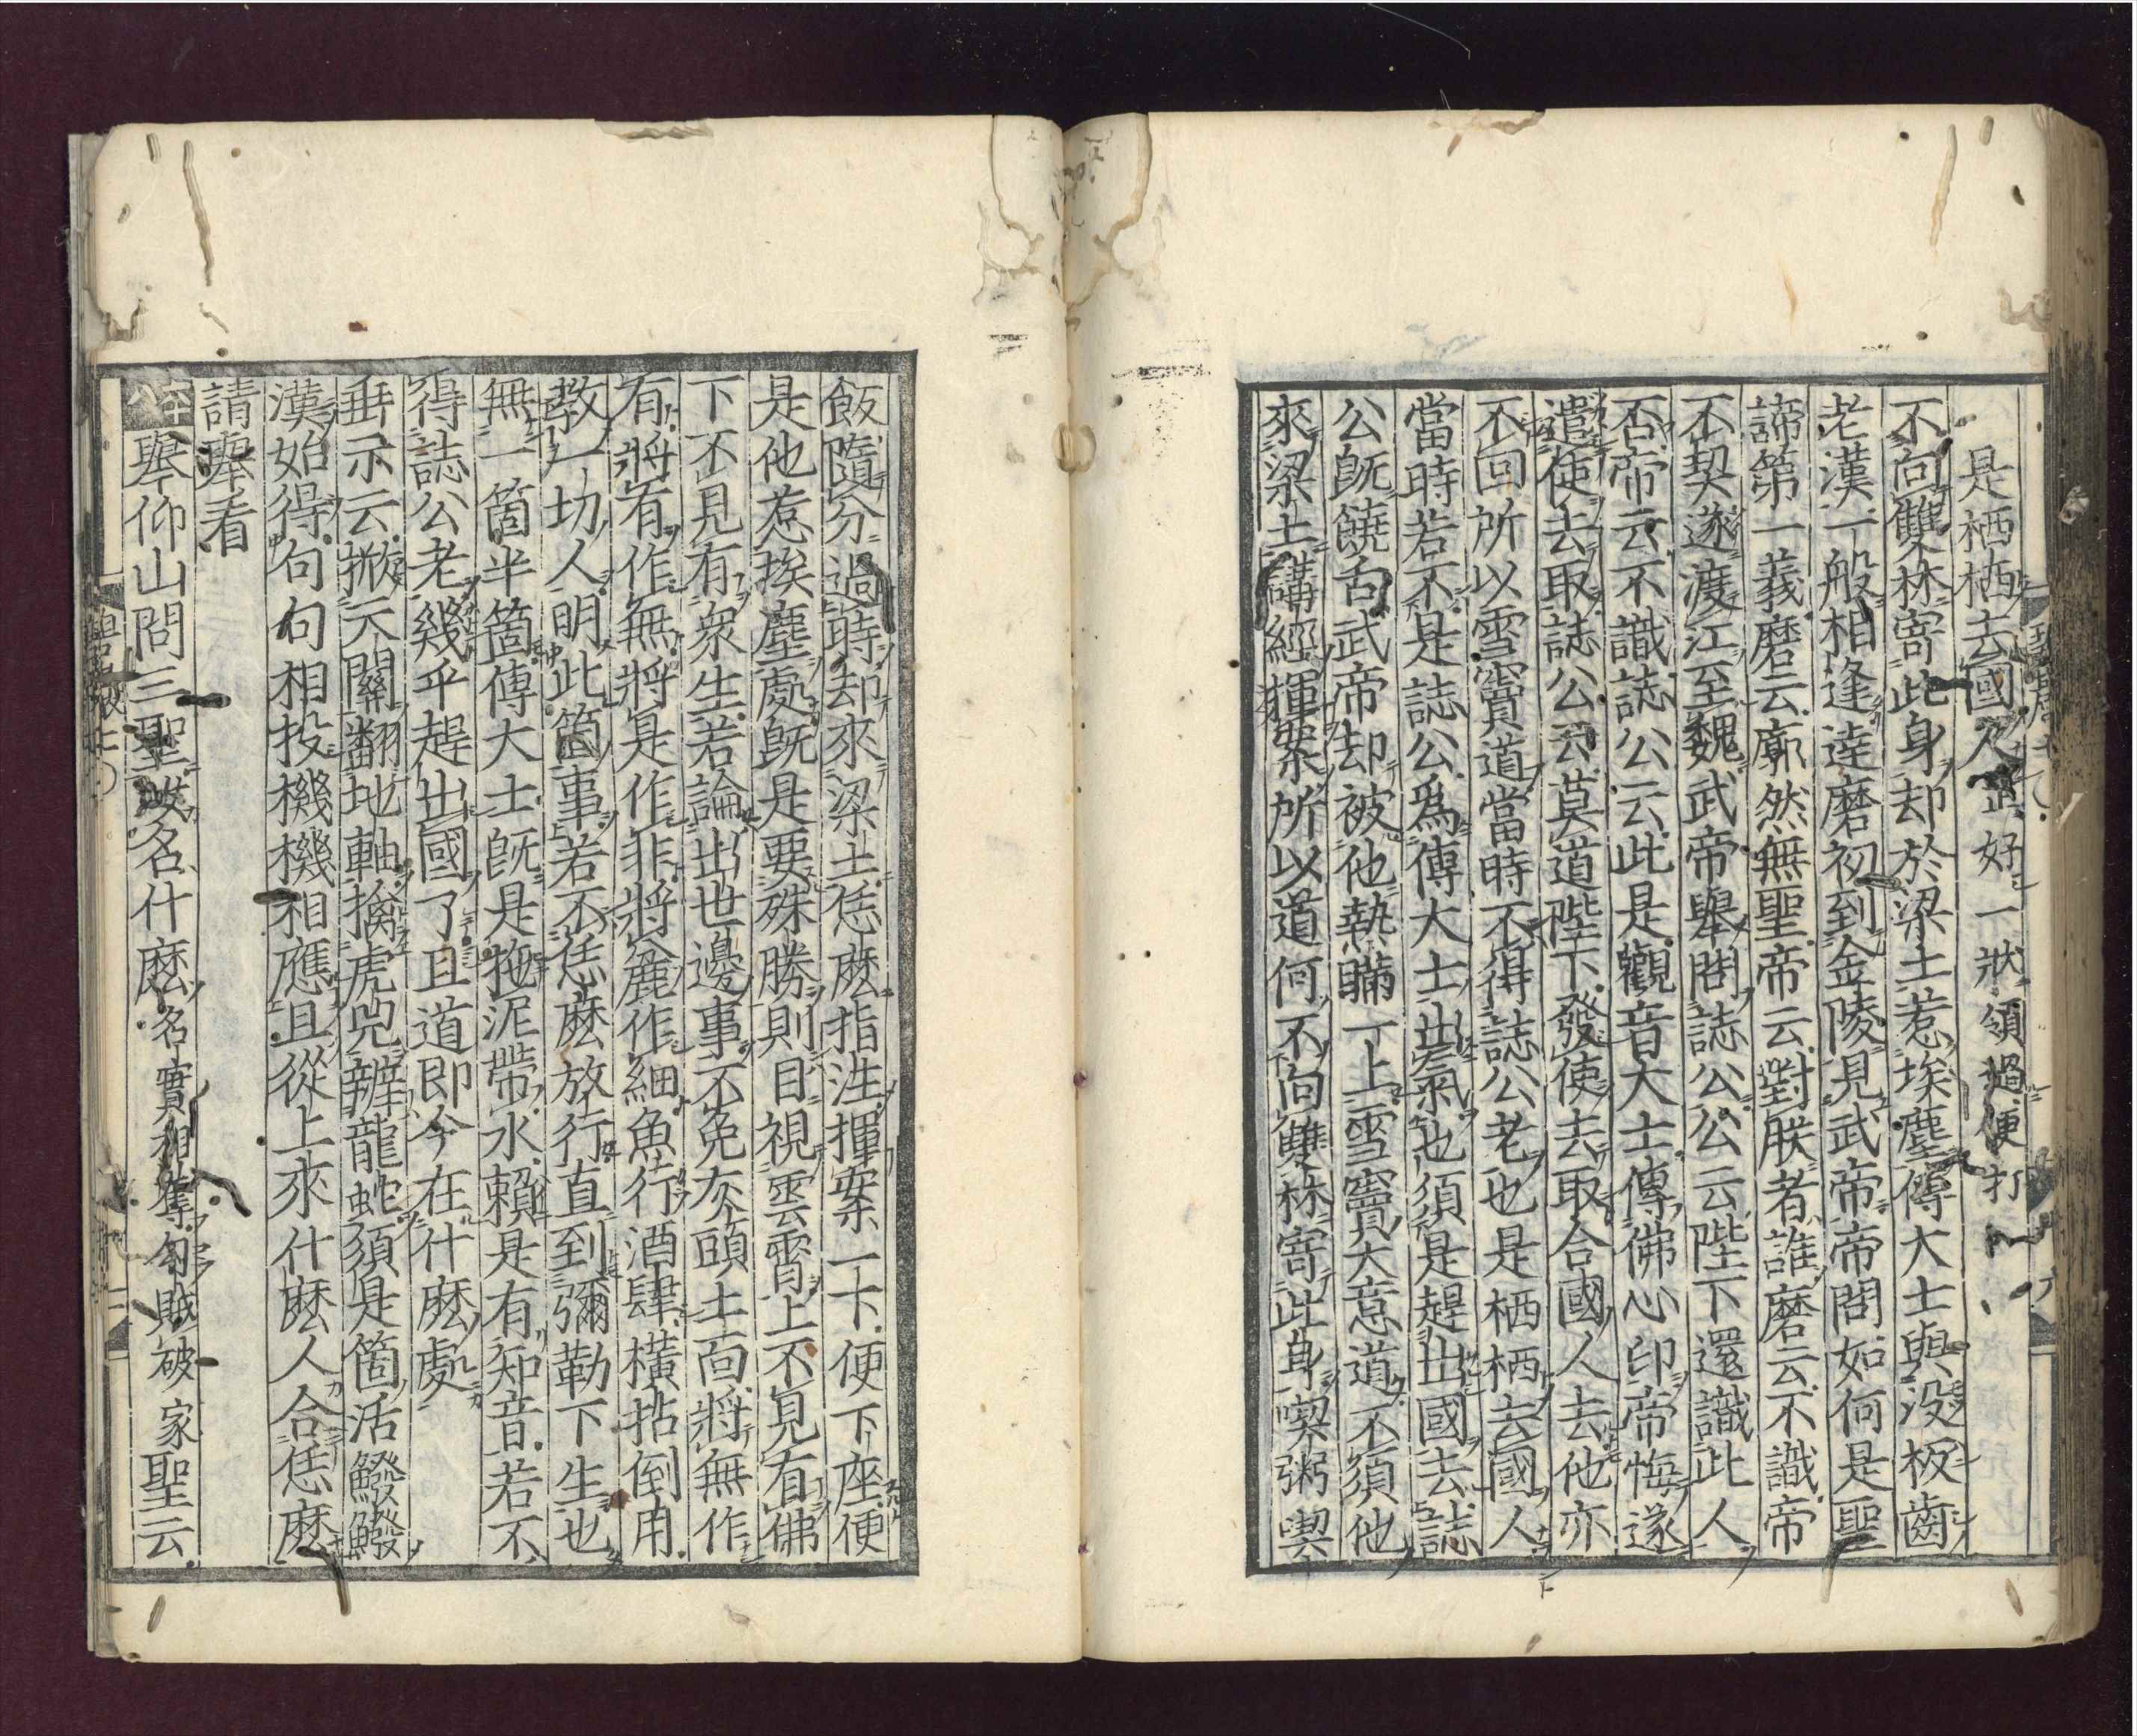 是栖栖去國人正好一狀領過便打
不向雙林寄此身却於梁土惹埃塵傅大士與没板齒
老漢一般相逢達磨初到金陵見武帝帝問如何是聖
諦第一義磨云廓然無聖帝云對朕者誰磨云不識帝
不契遂渡江至魏武帝舉問誌公公云陛下還識此人
否帝云不識誌公云此是觀音大士傳佛心印帝悔遂
遣使去取誌公云莫道陛下發使去取合國人去他亦
不回所以雪竇道當時不得誌公老也是栖栖去國人
當時若不是誌公爲傅大士出氣也須是趕出國去誌
公既饒舌武帝却被他熱瞞一上雪竇大意道不須他
來梁土講經揮案所以道何不向雙林寄此身喫粥喫
飯隨分過時却來梁土恁麽指注揮案一下便下座便
是他惹埃塵處既是要殊勝則目視雲霄上不見有佛
下不見有衆生若論出世邊事不免灰頭土面將無作
有將有作無將是作非將麁作細魚行酒肆橫拈倒用
教一切人明此箇事若不恁麽放行直到彌勒下生也
無一箇半箇傅大士既是拖泥帶水賴是有知音若不
得誌公老幾乎趕出國了且道即今在什麽處
垂示云掀天關翻地軸擒虎兕辨龍蛇須是箇活鱍鱍
漢始得句句相投機機相應且從上來什麽人合恁麽
請舉看
六八 舉仰山問三聖汝名什麽名實相奪勾賊破家聖云